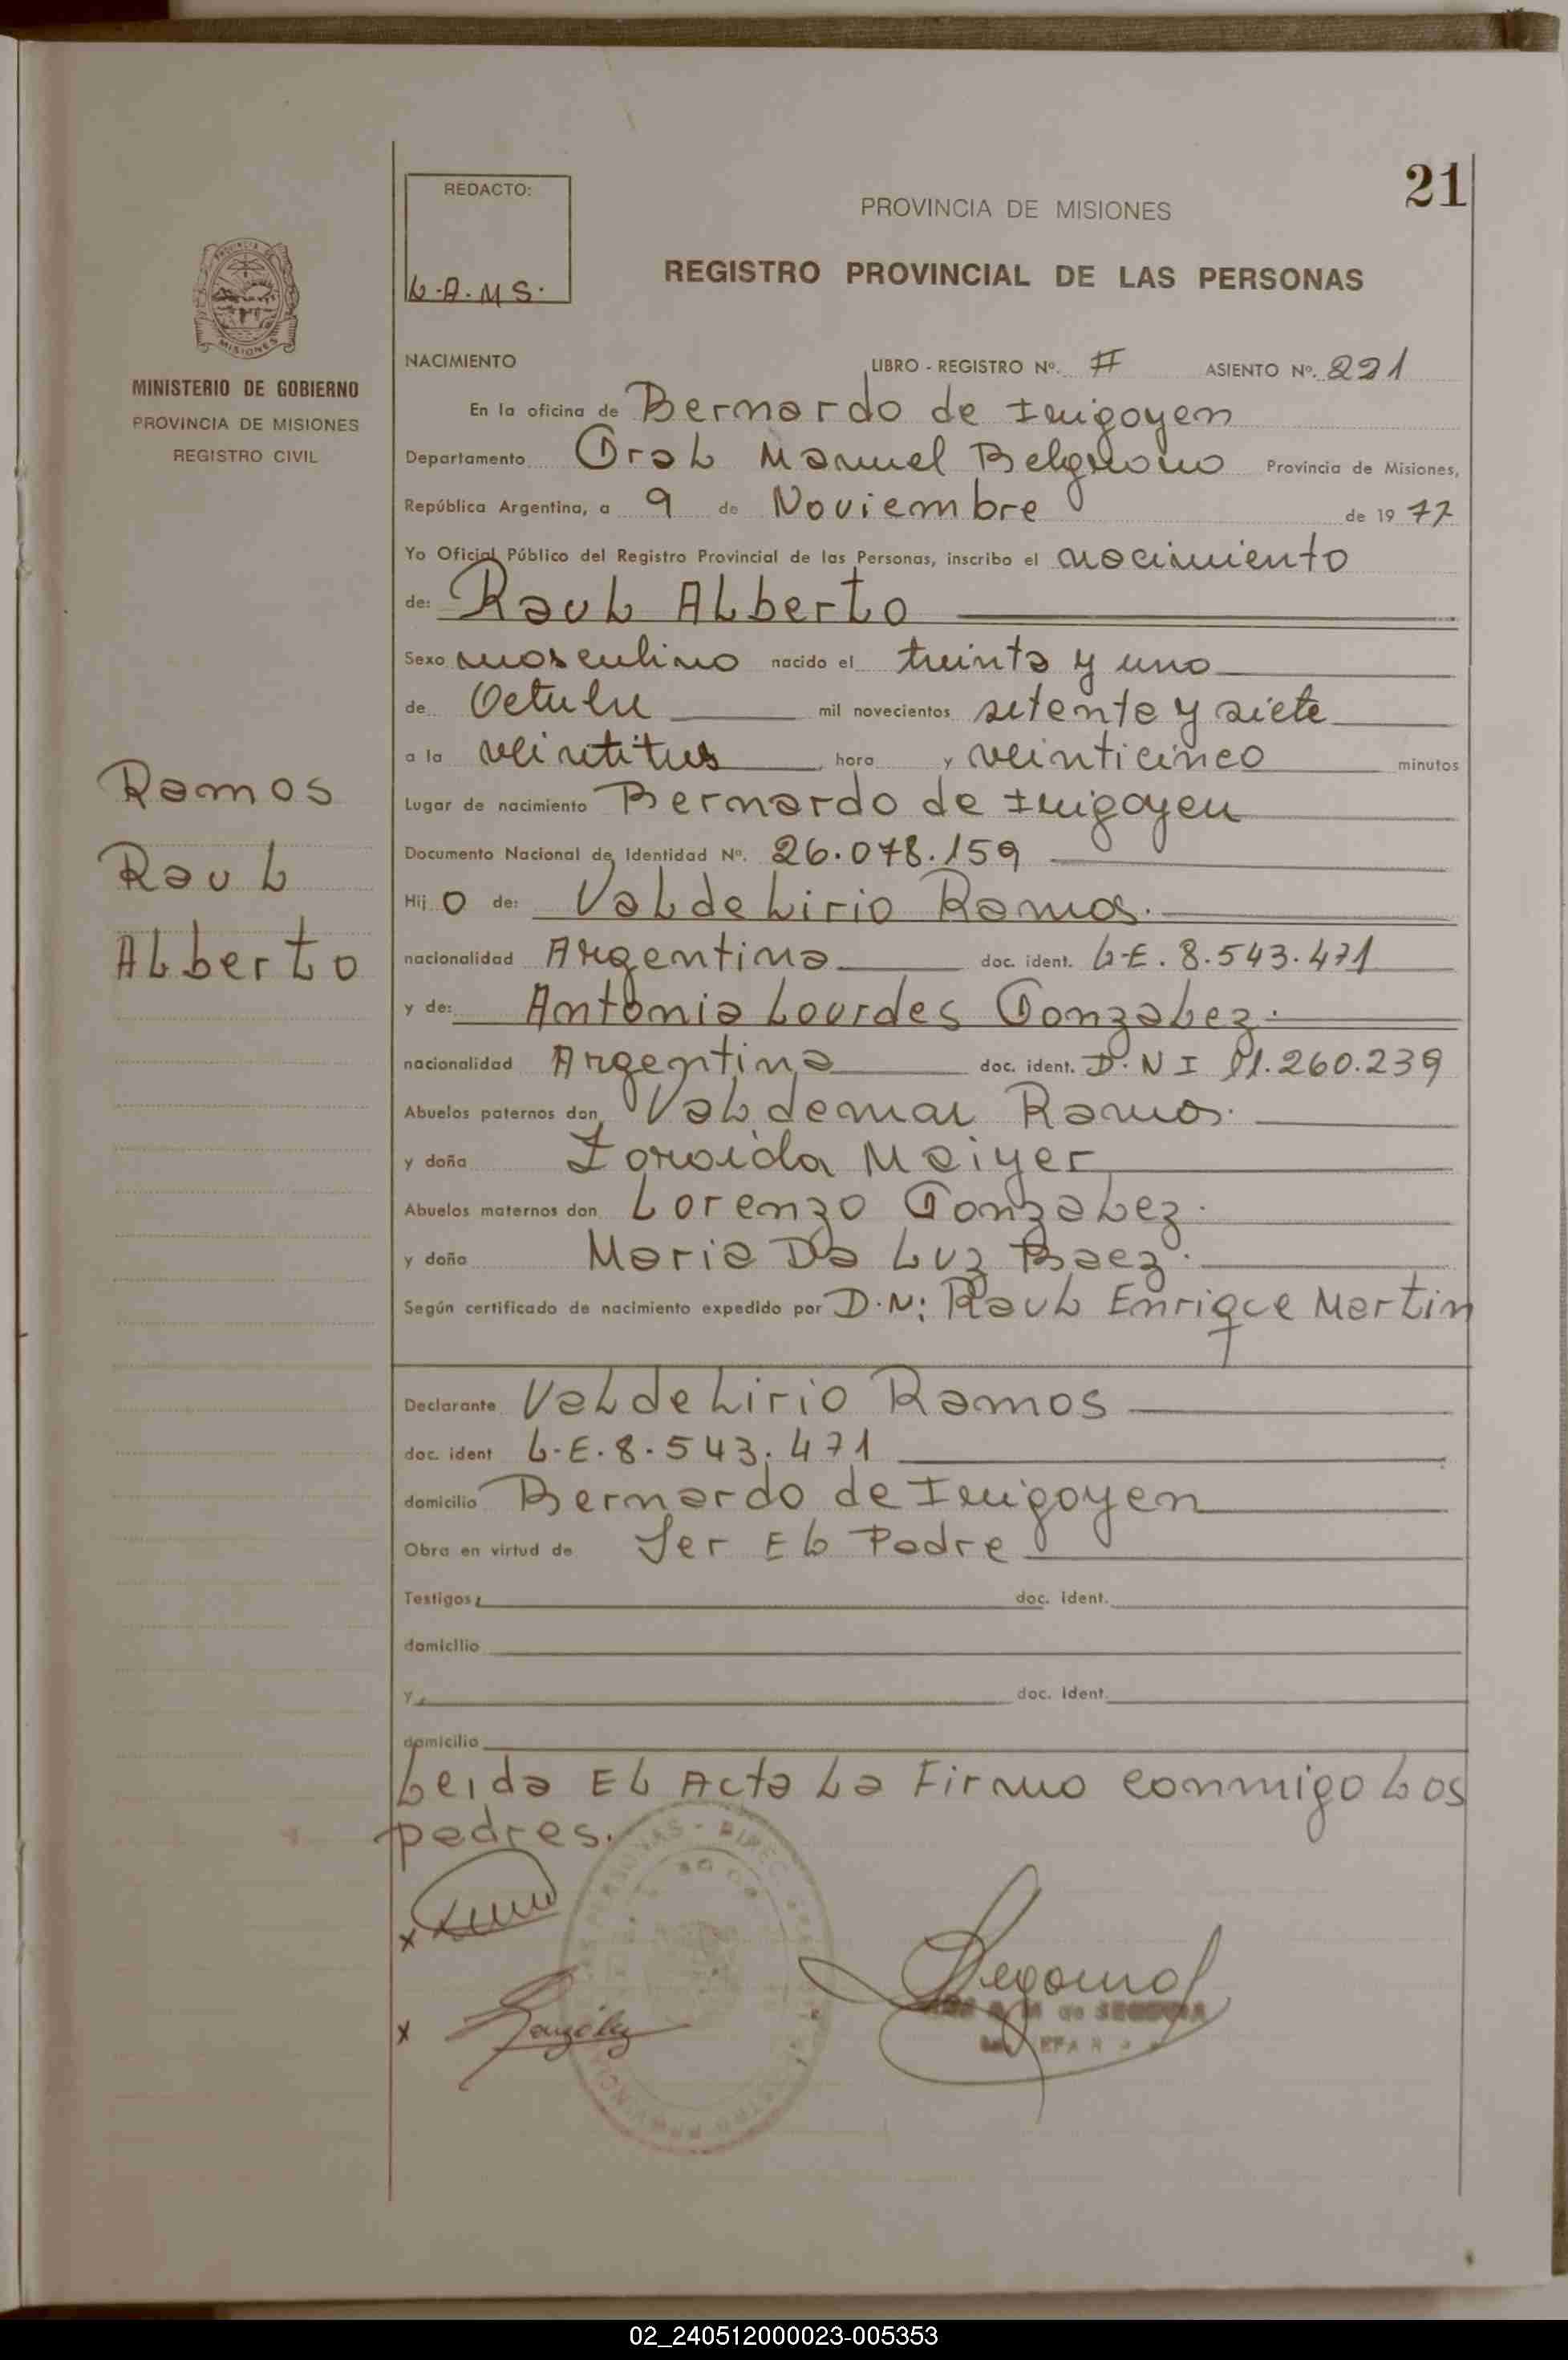 21
REDACTO:
L.A.M.S.
PROVINCIA DE MISIONES
REGISTRO PROVINCIAL DE LAS PERSONAS
MISIONES
MINISTERIO DE GOBIERNO
PROVINCIA DE MISIONES
REGISTRO CIVIL
NACIMIENTO LIBRO - REGISTRO Nº. II ASIENTO Nº. 221
En la oficina de Bernardo de Irigoyen
Departamento Gral Manuel Belgrano Provincia de Misiones,
República Argentina, a 9 de Noviembre de 19 77
Yo Oficial Público del Registro Provincial de las Personas, inscribo el nacimiento
de: Raul Alberto
Sexo masculino nacido el treinta y uno
de Octubre mil novecientos setenta y siete
a la veintitres hora y veinticinco minutos
Lugar de nacimiento Bernardo de Irigoyen
Documento Nacional de Identidad Nº. 26.078.159
Hij o de: Valdelirio Ramos.
nacionalidad Argentina doc. ident. L.E. 8.543.471
y de: Antonia Lourdes Gonzalez.
nacionalidad Argentina doc. ident. D.N I 11.260.239
Abuelos paternos don Valdemar Ramos.
y doña Zoraida Meiyer
Abuelos maternos don Lorenzo Gonzalez.
y doña Maria Da Luz Baez.
Según certificado de nacimiento expedido por D.N: Raul Enrique Martin
Ramos
Raul
Alberto
Declarante Valdelirio Ramos
doc. ident L.E. 8.543.471
domicilio Bernardo de Irigoyen
Obra en virtud de Ser El Padre
Testigos: doc. ident.
domicilio
y doc. ident.
domicilio
Leida El Acta La Firma conmigo Los
padres.
x
x González
de SEGOVIA
02_240512000023-005353